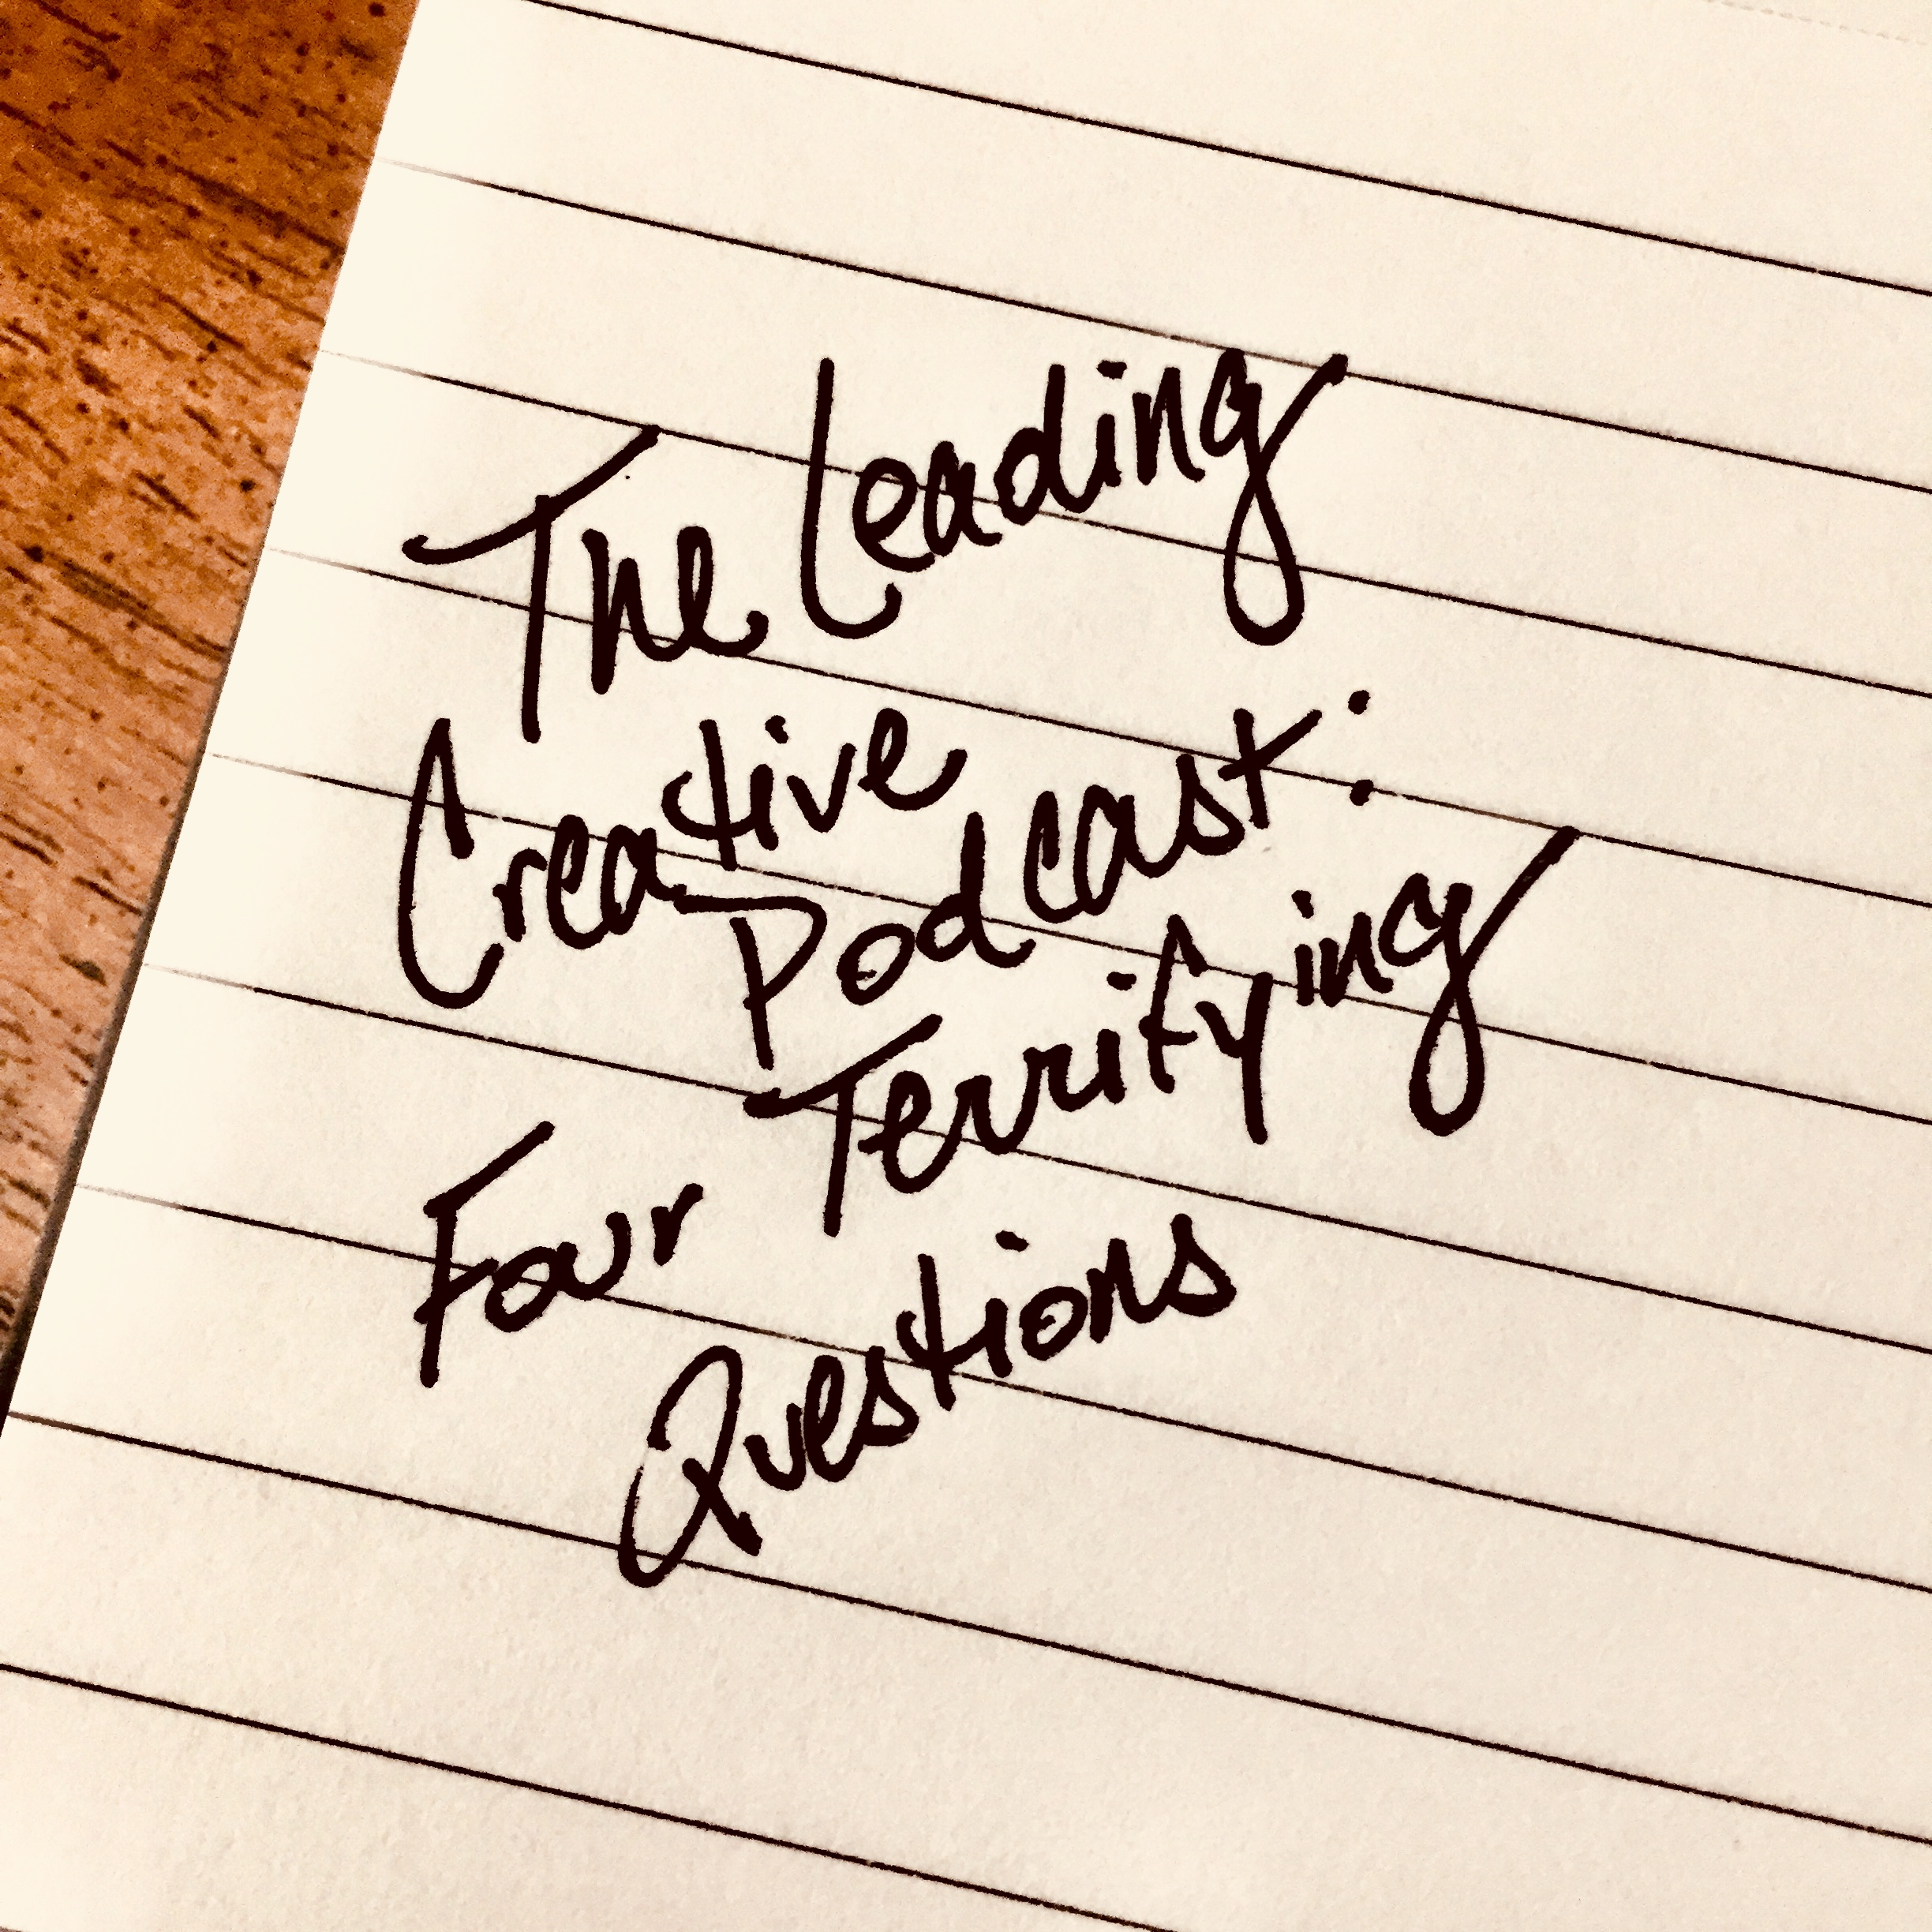 The Leading
Creative
Podcast:
Four Terrifying
Questions